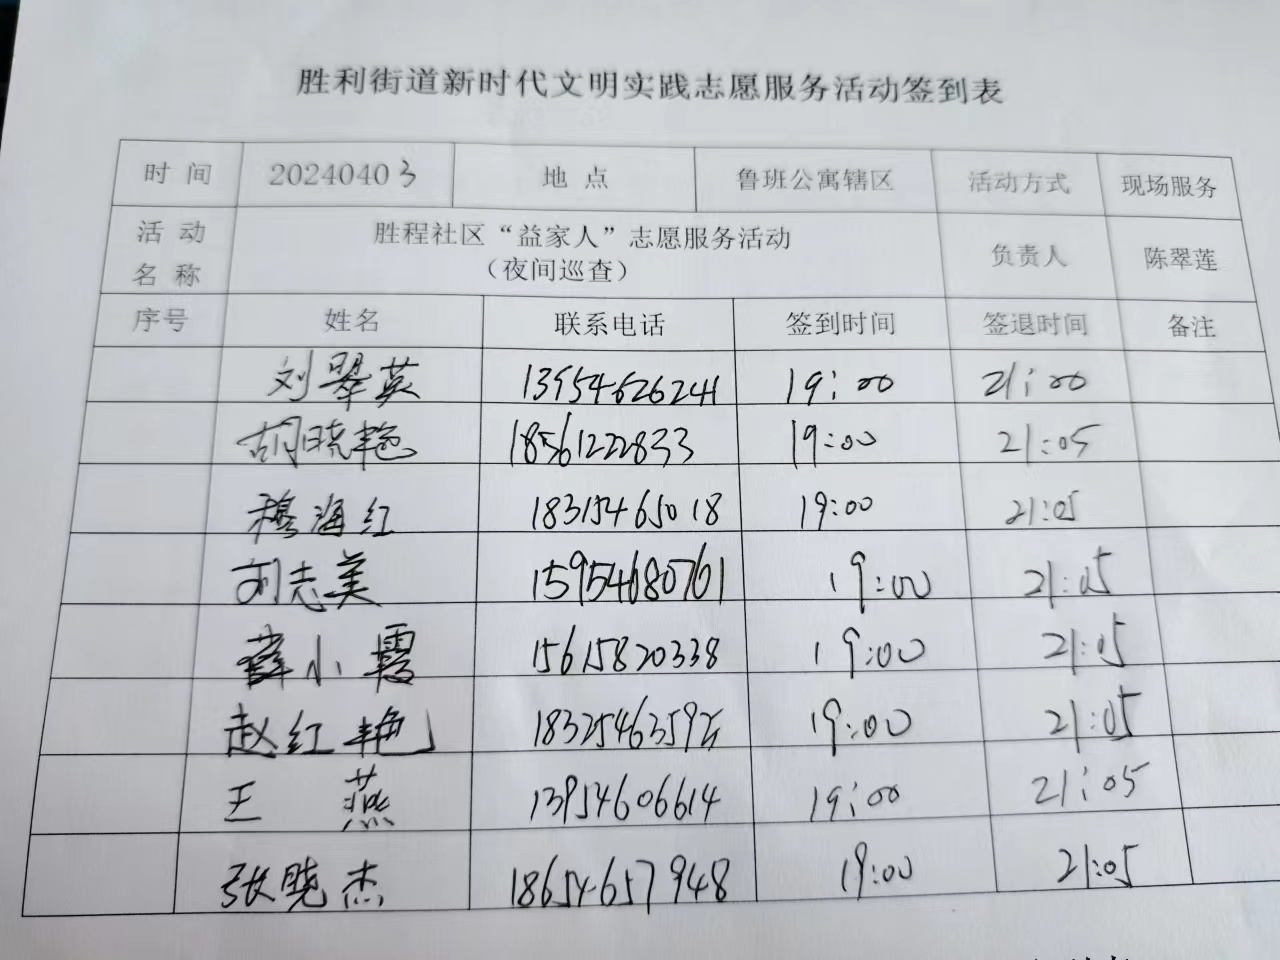 胜利街道新时代文明实践志愿服务活动签到表
时 间 20240403 地 点 鲁班公寓辖区 活动方式 现场服务
活 动 名 称 胜程社区“益家人”志愿服务活动 (夜间巡查) 负责人 陈翠莲
序号 姓名 联系电话 签到时间 签退时间 备注
刘翠英 13954626241 19:00 21:00
胡晓艳 18561222833 19:00 21:05
穆海红 18315465018 19:00 21:05
刘志美 15954680761 19:00 21:05
薛小霞 15615820338 19:00 21:05
赵红艳 19:00 21:05
王 燕 13954606614 19:00 21:05
张晓杰 18654657948 19:00 21:05